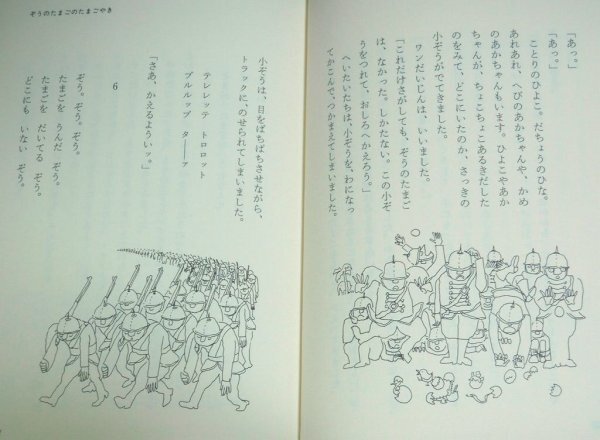 「あっ。」
「あっ。」
ことりのひよこ。だちょうのひな。
あれあれ、へびのあかちゃんや、かめ
のあかちゃんもいます。ひよこやあか
ちゃんが、ちょこちょこあるきだした
のをみて、どこにいたのか、さっきの
小ぞうがでてきました。
ワンだいじんは、いいました。
「これだけさがしても、ぞうのたまご
は、なかった。しかたない。この小ぞ
うをつれて、おしろへかえろう。」
へいたいたちは、小ぞうを、わになっ
てかこんで、つかまえてしまいました。
ぞうのたまごのたまごやき
小ぞうは、目をぱちぱちさせながら、
トラックに、のせられてしまいました。
テレレッテ トロロット
プルルップ タ——ァ
「さあ、かえるようい​ッ。」
6
ぞう。ぞう。ぞう。
たまごを うんだ ぞう。
たまごを だいてる ぞう。
どこにも いない ぞう。